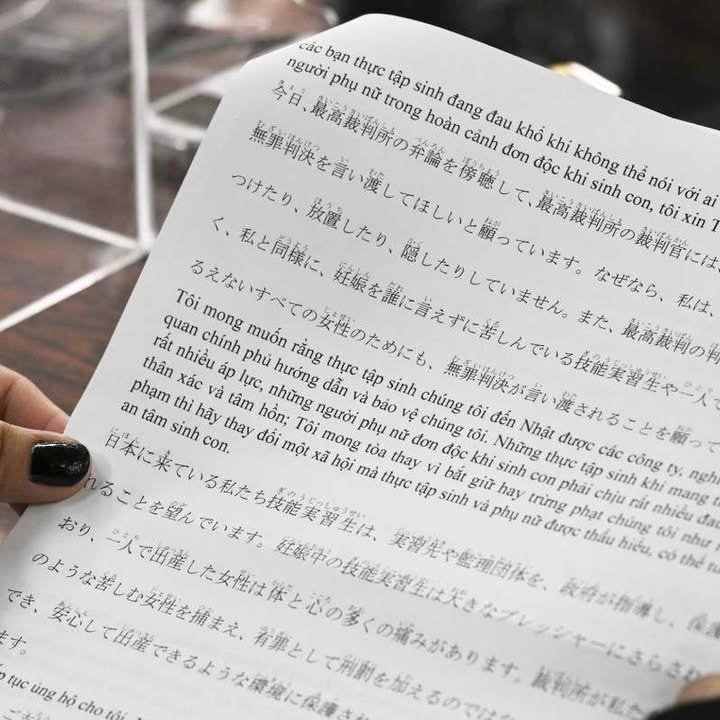 các bạn thực tập sinh đang đau khổ khi không thể nói với ai
người phụ nữ trong hoàn cảnh đơn độc khi sinh con, tôi xin T
今日、最高裁判所の弁論を傍聴して、最高裁判所の裁判官には、
無罪判決を言い渡してほしいと願っています。なぜなら、私は、
つけたり、放置したり、隠したりしていません。また、最高裁判の判
く、私と同様に、妊娠を誰に言えずに苦しんでいる技能実習生や一人で
るえないすべての女性のためにも、無罪判決が言い渡されることを願って
Tôi mong muốn rằng thực tập sinh chúng tôi đến Nhật được các công ty, ngh
quan chính phủ hướng dẫn và bảo vệ chúng tôi. Những thực tập sinh khi mang t
rất nhiều áp lực, những người phụ nữ đơn độc khi sinh con phải chịu rất nhiều đa
thân xác và tâm hồn; Tôi mong tòa thay vì bắt giữ hay trừng phạt chúng tôi như
phạm thì hãy thay đổi một xã hội mà thực tập sinh và phụ nữ được thấu hiểu, có thể
an tâm sinh con.
日本に来ている私たち技能実習生は、実習先や監理団体を、政府が指導し、保護
れることを望んでいます。妊娠中の技能実習生は大きなプレッシャーにさらされ
おり、一人で出産した女性は体と心の多くの痛みがあります。裁判所が私た
のような苦しむ女性を捕まえ、有罪として刑罰を加えるのではな
でき、安心して出産できるような環境に保護され
ます。
ếp tục ủng hộ cho tôi.